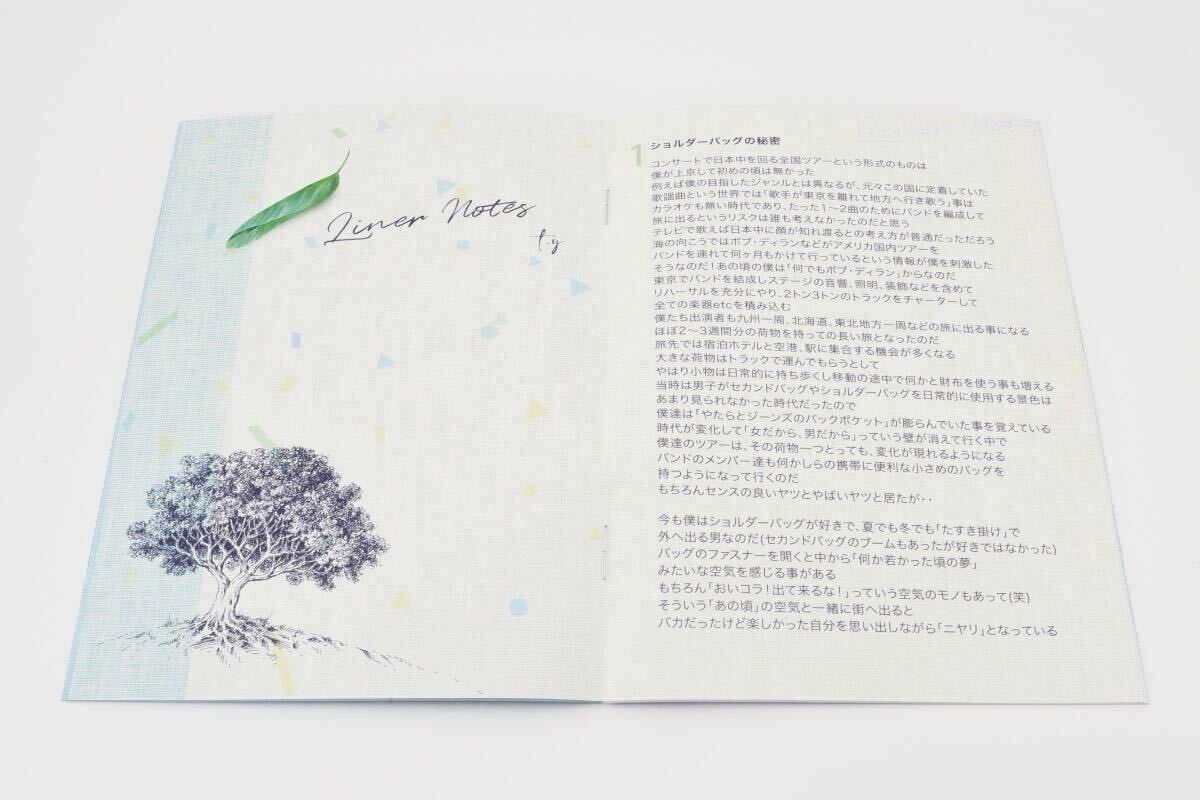 Liner Notes
t.y
Liner Notes
1
ショルダーバッグの秘密
コンサートで日本中を回る全国ツアーという形式のものは
僕が上京して初めの頃は無かった
例えば僕の目指したジャンルとは異なるが、元々この国に定着していた
歌謡曲という世界では「歌手が東京を離れて地方へ行き歌う」事は
カラオケも無い時代であり、たった1〜2曲のためにバンドを編成して
旅に出るというリスクは誰も考えなかったのだと思う
テレビで歌えば日本中に顔が知れ渡るとの考え方が普通だっただろう
海の向こうではボブ・ディランなどがアメリカ国内ツアーを
バンドを連れて何ヶ月もかけて行っているという情報が僕を刺激した
そうなのだ！あの頃の僕は「何でもボブ・ディラン」からなのだ
東京でバンドを結成しステージの音響、照明、装飾などを含めて
リハーサルを充分にやり、2トン3トンのトラックをチャーターして
全ての楽器etcを積み込む
僕たち出演者も九州一周、北海道、東北地方一周などの旅に出る事になる
ほぼ2〜3週間分の荷物を持っての長い旅となったのだ
旅先では宿泊ホテルと空港、駅に集合する機会が多くなる
大きな荷物はトラックで運んでもらうとして
やはり小物は日常的に持ち歩くし移動の途中で何かと財布を使う事も増える
当時は男子がセカンドバッグやショルダーバッグを日常的に使用する景色は
あまり見られなかった時代だったので
僕達は「やたらとジーンズのバックポケット」が膨らんでいた事を覚えている
時代が変化して「女だから、男だから」っていう壁が消えて行く中で
僕達のツアーは、その荷物一つとっても、変化が現れるようになる
バンドのメンバー達も何かしらの携帯に便利な小さめのバッグを
持つようになって行くのだ
もちろんセンスの良いヤツとやばいヤツと居たが‥
今も僕はショルダーバッグが好きで、夏でも冬でも「たすき掛け」で
外へ出る男なのだ(セカンドバッグのブームもあったが好きではなかった)
バッグのファスナーを開くと中から「何か若かった頃の夢」
みたいな空気を感じる事がある
もちろん「おいコラ！出て来るな！」っていう空気のモノもあって(笑)
そういう「あの頃」の空気と一緒に街へ出ると
バカだったけど楽しかった自分を思い出しながら「ニヤリ」となっている